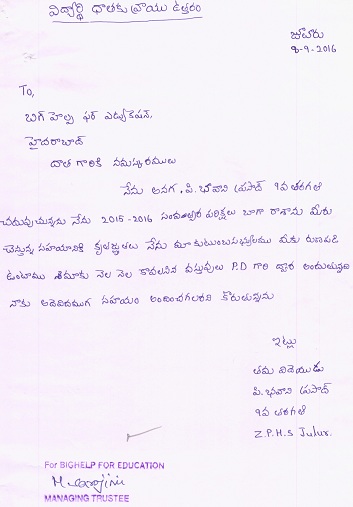 విద్యార్థి దాతకు వ్రాయు ఉత్తరం
జూలూరు
8-9-2016
To,
బిగ్ హెల్ప్ ఫర్ ఎడ్యుకేషన్,
హైదరాబాద్
దాత గారికి నమస్కారములు
నేను అనగ. పి. భవాని ప్రసాద్ 9వ తరగతి
చదువుచున్నను నేను 2015-2016 సంవత్సర పరీక్షలు బాగా రాశాను మీరు
చేస్తున్న సహయానికి కృతజ్ఞతలు నేను మా కుటుంబసభ్యులము మీకు రుణపడి
ఉంటాము నెల నెల కావలసిన వస్తువులు P.D గారి ద్వార అందుతున్నవి
నాకు అదేవిదముగ సహయం అందించగలరని కోరుతున్నను
ఇట్లు
తమ విదేయుడు
పి. భవాని ప్రసాద్
9వ తరగతి
Z.P.H.S Julur.
For BIGHELP FOR EDUCATION
M Sarojini
MANAGING TRUSTEE